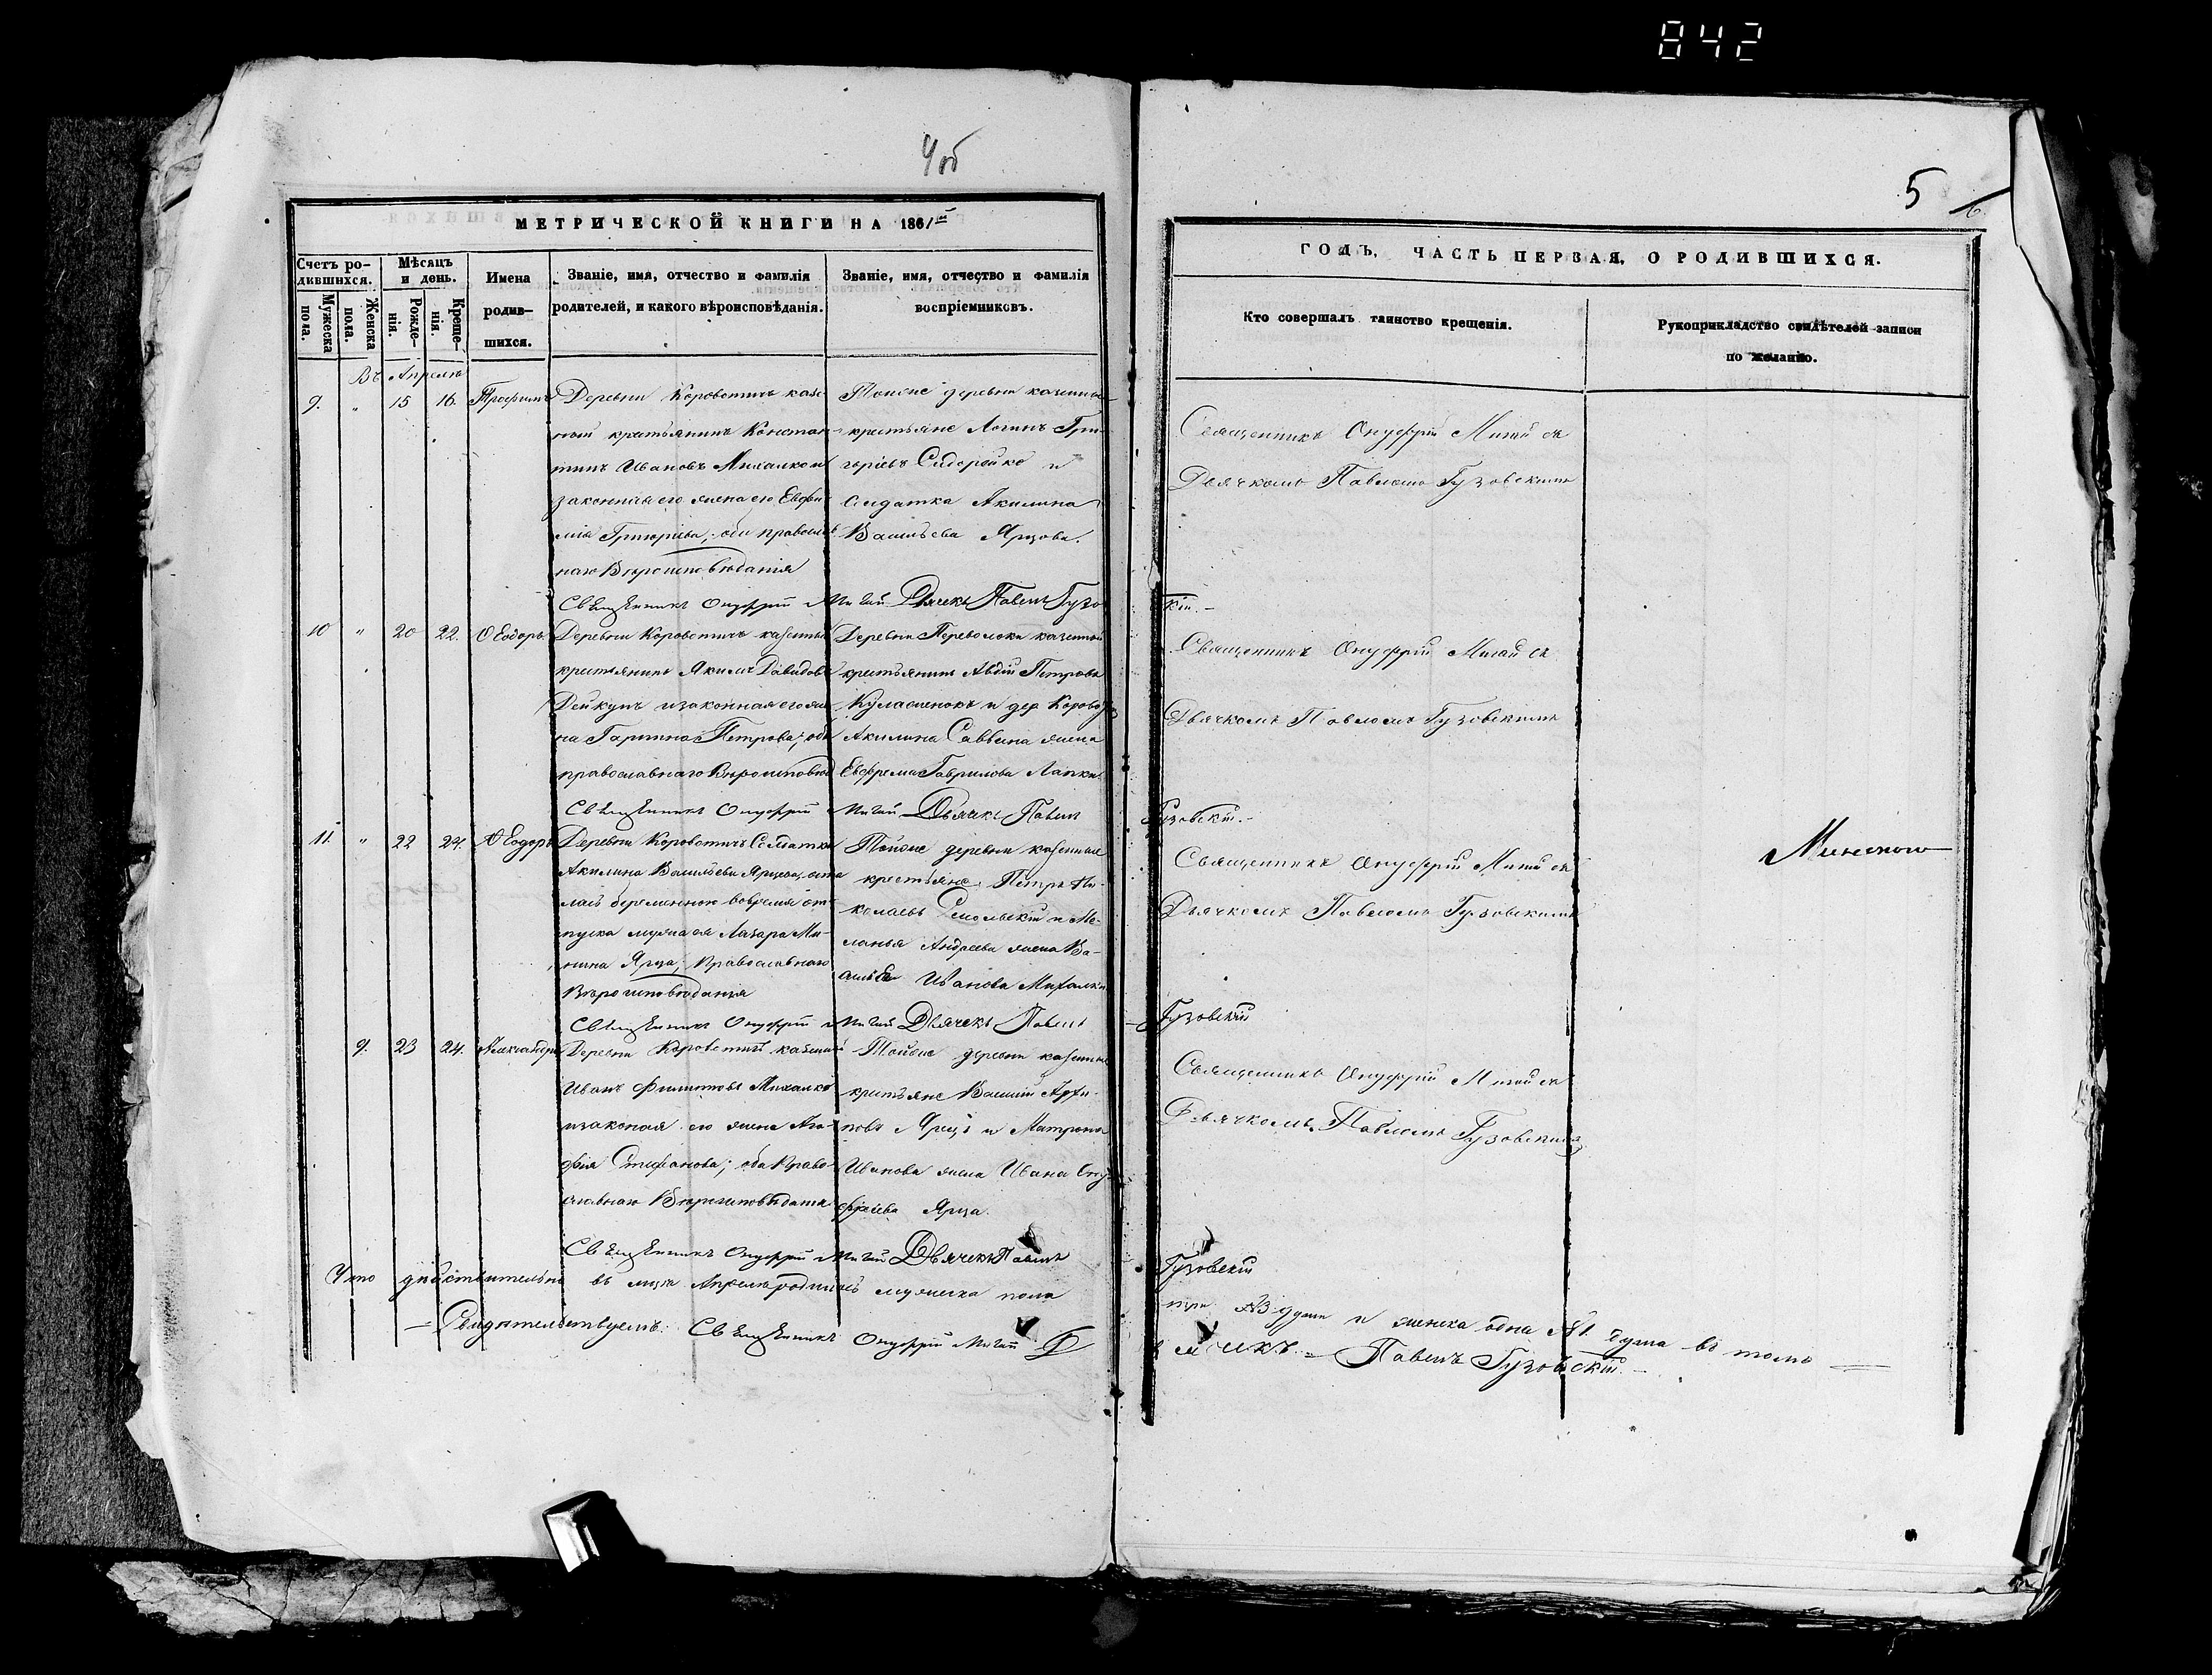 842
4об
5
МЕТРИЧЕСКОЙ КНИГИ НА 1861
ГОДЪ, ЧАСТЬ ПЕРВАЯ, О РОДИВШИХСЯ.
Счетъ ро-
дившихся.
Мужеска
пола.
Женска
пола.
Мѣсяцъ
и день.
Рожде-
нія.
Креще-
нія.
Имена
родив-
шихся.
Званіе, имя, отчество и фамилія
родителей, и какого вѣроисповѣданія.
Званіе, имя, отчество и фамилія
воспріемниковъ.
Кто совершалъ таинство крещенія.
Рукоприкладство свидѣтелей записи
по желанію.
Въ Апрелѣ
9. " 15 16. Трофимъ
Деревни Коровотичъ казе-
ный крестьянинъ Констан-
тинъ Ивановъ Михалко и
законная его жена Евфи-
мія Григоріева; оба православ
наго Вѣроисповѣданія
Тойже деревни казенные
крестьяне Логинъ Гри-
горіевъ Сидорейко и
солдатка Акилина
Васильева Ярцова.
Священникъ Онуфрій Мигай съ
Дьячкомъ Павломъ Гузовскимъ
Священникъ Онуфрій Мигай Дьячекъ Павелъ Гузо
кій.
10 " 20 22. Ѳеодоръ
Деревни Коровотичъ казенный
крестьянинъ Якимъ Давидовъ
Дейкунъ и законная его же
на Петрова; оба
православнаго Вѣроисповѣд
Деревни Переволоки казенный
крестьянинъ Авдій Петровъ
и дер Корово
Акилина Саввина жена
Евфрема Гаврилова Лапки
Священникъ Онуфрій Мигай съ
Дьячкомъ Павломъ Гузовскимъ
Священникъ Онуфрій Мигай Дьячекъ Павелъ
Гузовскій.
11. " 22 24. Ѳеодоръ
Деревни Коровотичъ Солдатка
Акилина Васильева Ярцова, оста
лась беременною вовремя от-
пуска мужа ея Лазара Ми-
нина Ярца; Православнаго
Вѣроисповѣданія
Тойже деревни казенные
крестьяне Петръ Ни-
колаевъ и Ме-
ланья Андреева жена Ва-
силія Иванова Михалки
Священникъ Онуфрій Мигай съ
Дьячкомъ Павломъ Гузовскимъ
Минского
Священникъ Онуфрій Мигай Дьячекъ Павелъ
Гузовскій
9. 23 24. Александра
Деревни Коровотичъ казенный
Иванъ Филиповъ Михалко
и законая его жена Ага-
фія Стефанова; оба Право-
славнаго Вѣроисповѣданія
Тойже деревни казенные
крестьяне Василій
повъ Ярецъ и Матрона
Иванова жена Ивана Ону-
фріева Ярца.
Священникъ Онуфрій Мигай съ
Дьячкомъ Павломъ Гузовскимъ
Священникъ Онуфрій Мигай Дьячекъ Павелъ
Гузовскій
Что дѣйствительно въ мцѣ Апрелѣ родилось мужеска пола
три №3 души и женска одна №1 душа въ томъ
Свидѣтельствуемъ: Священникъ Онуфрій Мигай Д
ьячекъ Павелъ Гузовскій.